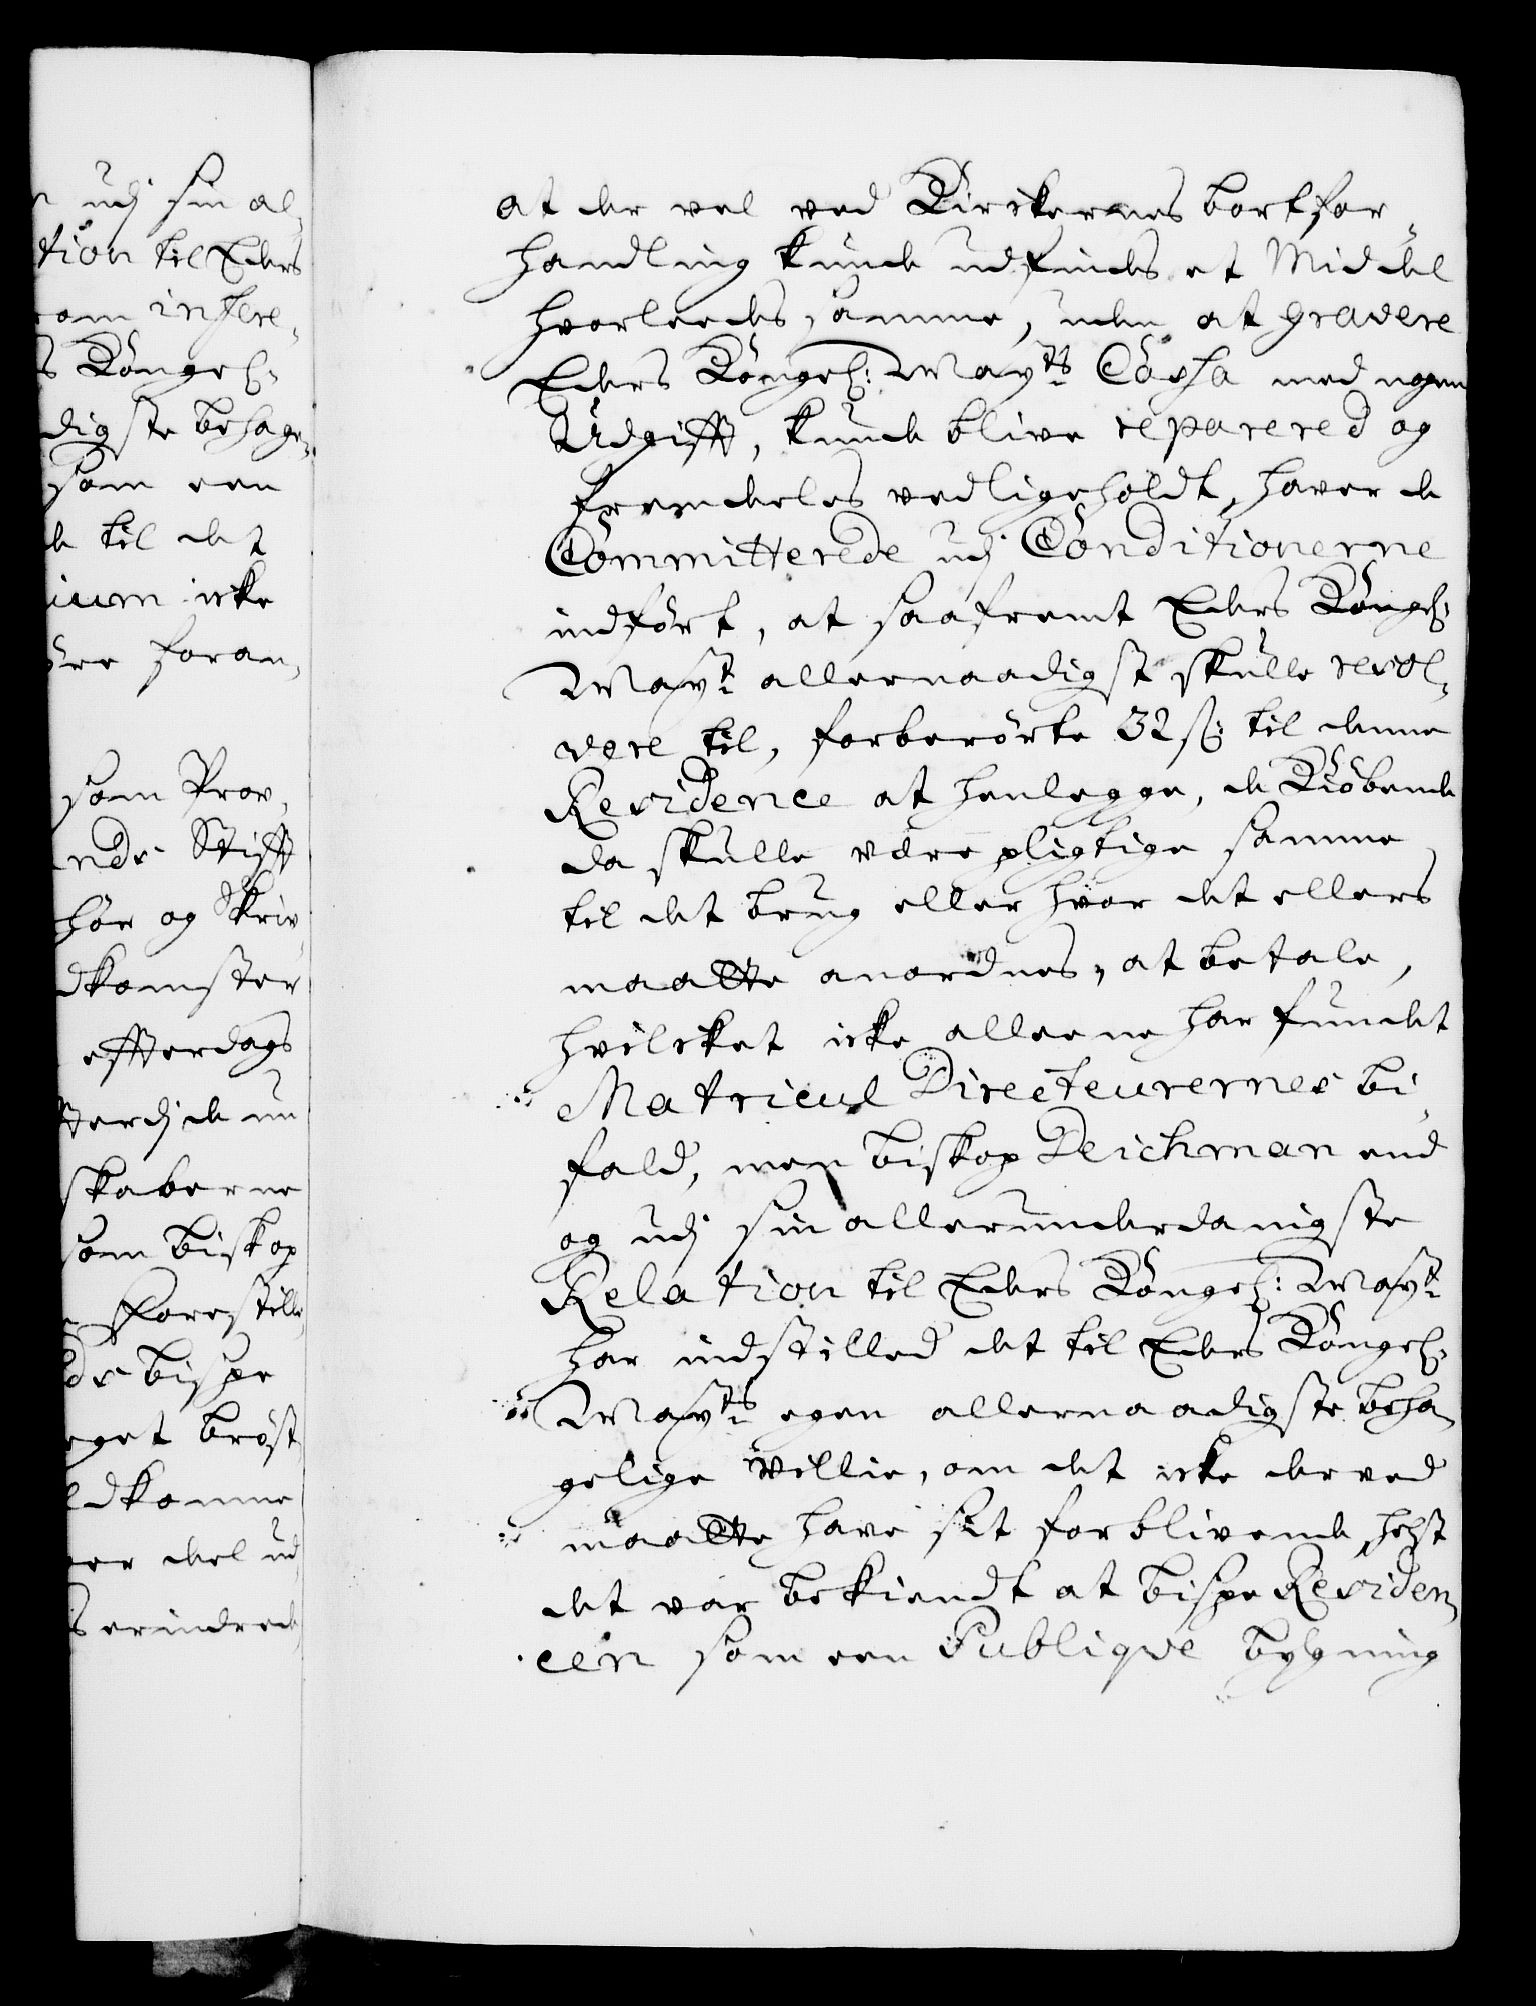 udj sin al-
tion til Eders
om infere-
s Kongel:
digste behage-
som een
de til det
ium icke
øre foran-
som Prov-
nds Stifft
hør og Skriv-
dkomster
effterdags
fterdj de nu
skaberne
som biskop
Forestille
ds bispe
eget brøst-
edkomme
er deel ud-
s erindrede
at der vel ved Kirckernes bortfor-
handling kunde udfindes et Middel
hvorleedes samme, uden at gravere
Eders Kongel: Mayts Cassa med nogen
Udgifft, kunde blive reparered og
fremdeles vedligeholdt, haver de
Committerede udj Conditionerne
indført, at saafremt Eders Kongel:
Mayt: allernaadigst skulle resol-
vere til, forberørte 32 s: til denne
Residence at henlegge, de Kiøbende
da skulle være pligtige samme
til det brug eller hvor det ellers
maatte anordnes, at betale,
hvilcket icke alleene har fundet
Matricul Directeurernes bi-
fald, men biskop Deichman end
og udj sin allerunderdanigste
Relation til Eders Kongel: Mayt:
har indstilled det til Eders Kongel:
Mayts: egen allernaadigste beha-
gelige Villie, om det icke derved
maatte have sit forblivende, helst
det var bekiendt at bispe Residen-
cen som een Publique bygning